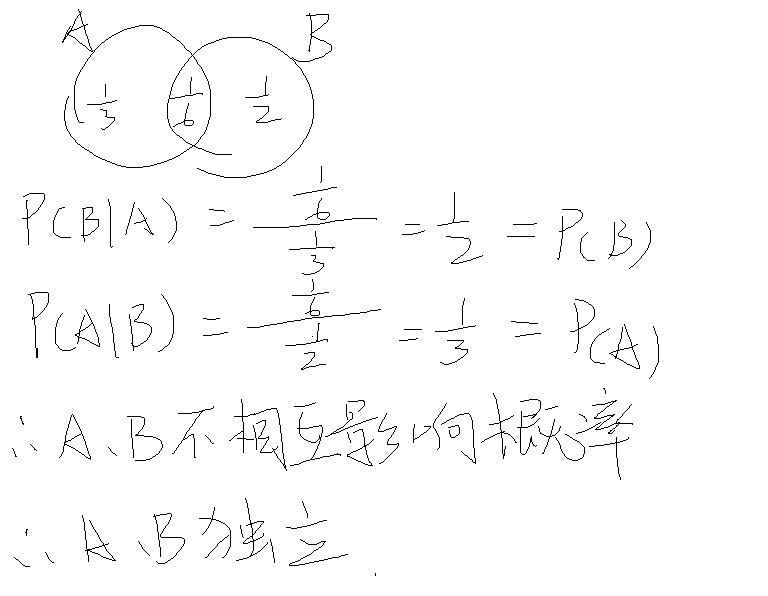 A B
1/3 1/6 1/2
P(B|A) = (1/6)/(1/3) = 1/2 = P(B)
P(A|B) = (1/6)/(1/2) = 1/3 = P(A)
∴A、B不相互影响概率
∴A、B为独立.